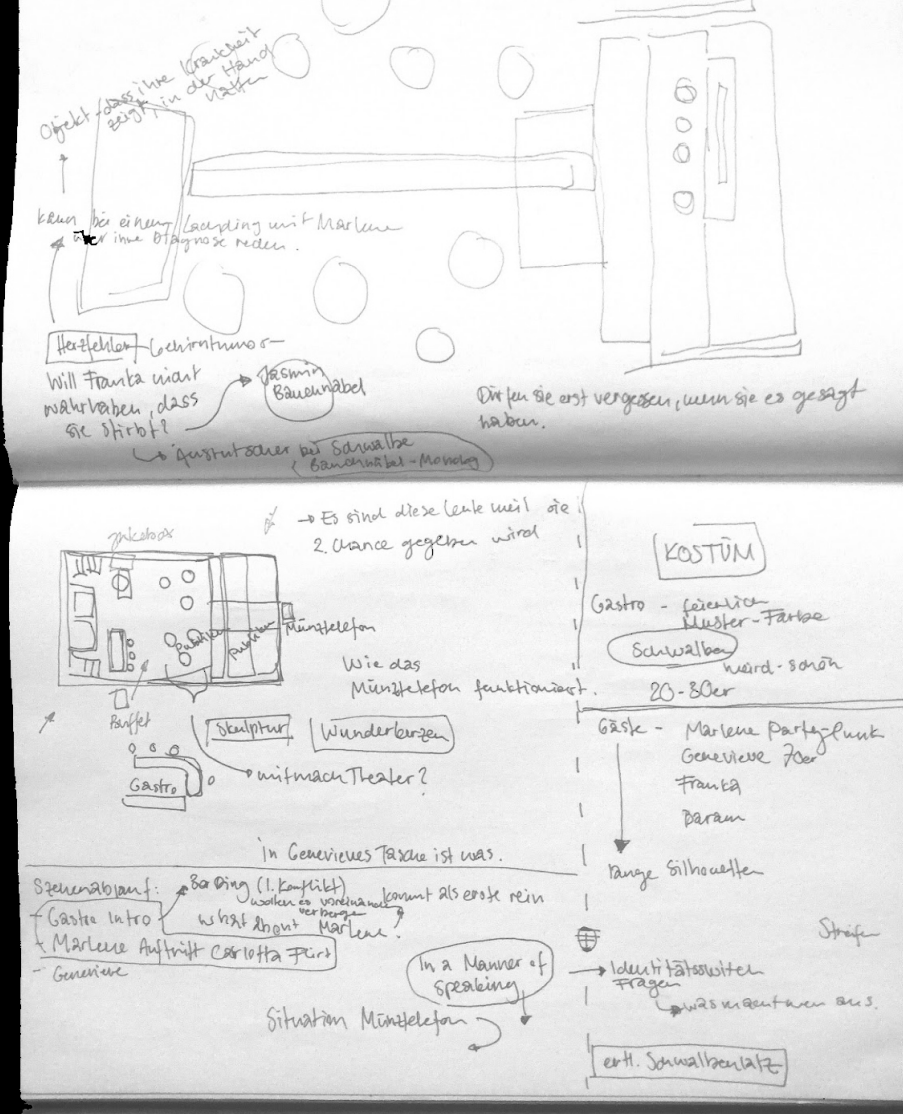 Objekt, dass ihre Krankheit
zeigt, in der Hand
halten
kann bei einem Landing mit Marlene
über ihre Diagnose reden.
Herzfehler
Gehirntumor
Will Franka nicht
wahrhaben, dass
sie stirbt?
Jasmin
Bauchnabel
Ausrutscher bei Schwalbe
Bauchnabel-Monolog
Dürfen sie erst vergessen, wenn sie es gesagt
haben.
→ Es sind diese Leute weil sie
2. Chance gegeben wird
Jukebox
Publikum
Publikum
Münztelefon
Wie das
Münztelefon funktioniert.
Buffet
Skulptur
Wunderkerzen
Gastro
mitmach Theater?
in Genevieves Tasche ist was.
Szenenablauf:
- Gastro Intro
- Marlene Auftritt Carlotta Flirt
- Genevieve
Bar Ding (1. Konflikt)
wollen es voreinander
verbergen
kommt als erste rein
what about Marlene?
In a Manner of
speaking
Situation Münztelefon
KOSTÜM
Gastro - feierlich
Muster-Farbe
Schwalben
weird-schön
20-30er
Gäste - Marlene Party-Punk
Genevieve 70er
Franka
Baram
lange Silhouetten
Streifen
→ Identitätsswitch
Fragen
was macht wen aus.
evtl. Schwalbenlatz